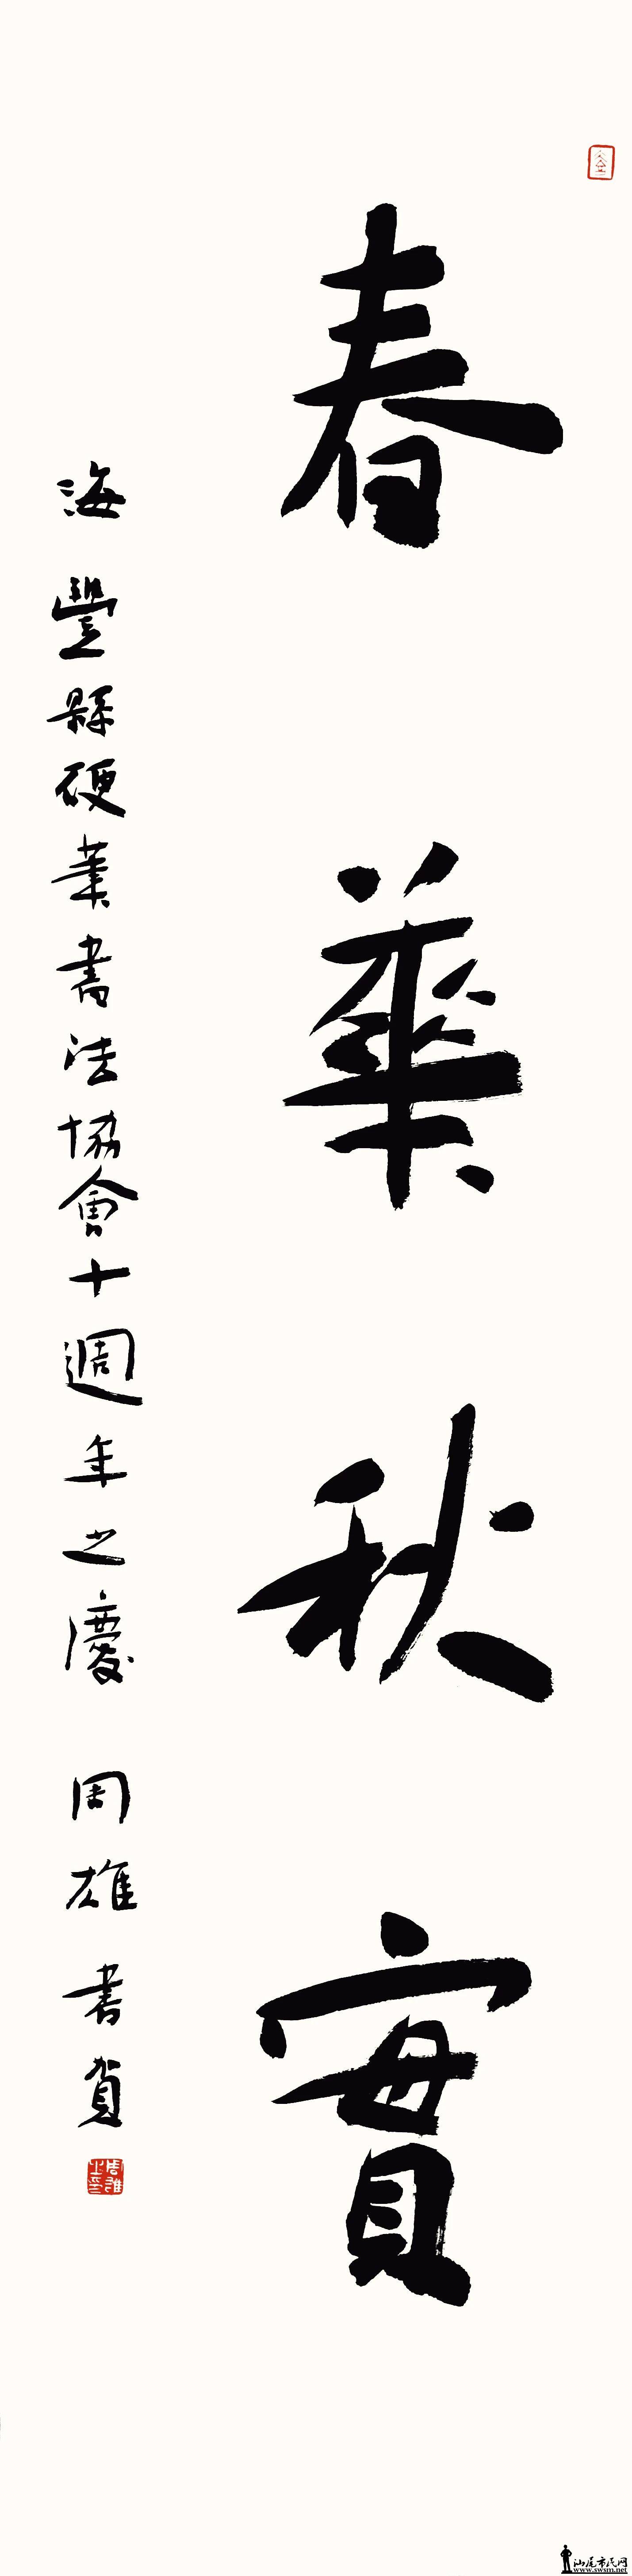 春華秋實
海豐縣硬筆書法協會十週年之慶 周雄書賀
周雄之印
汕尾市民网
www.swsm.net